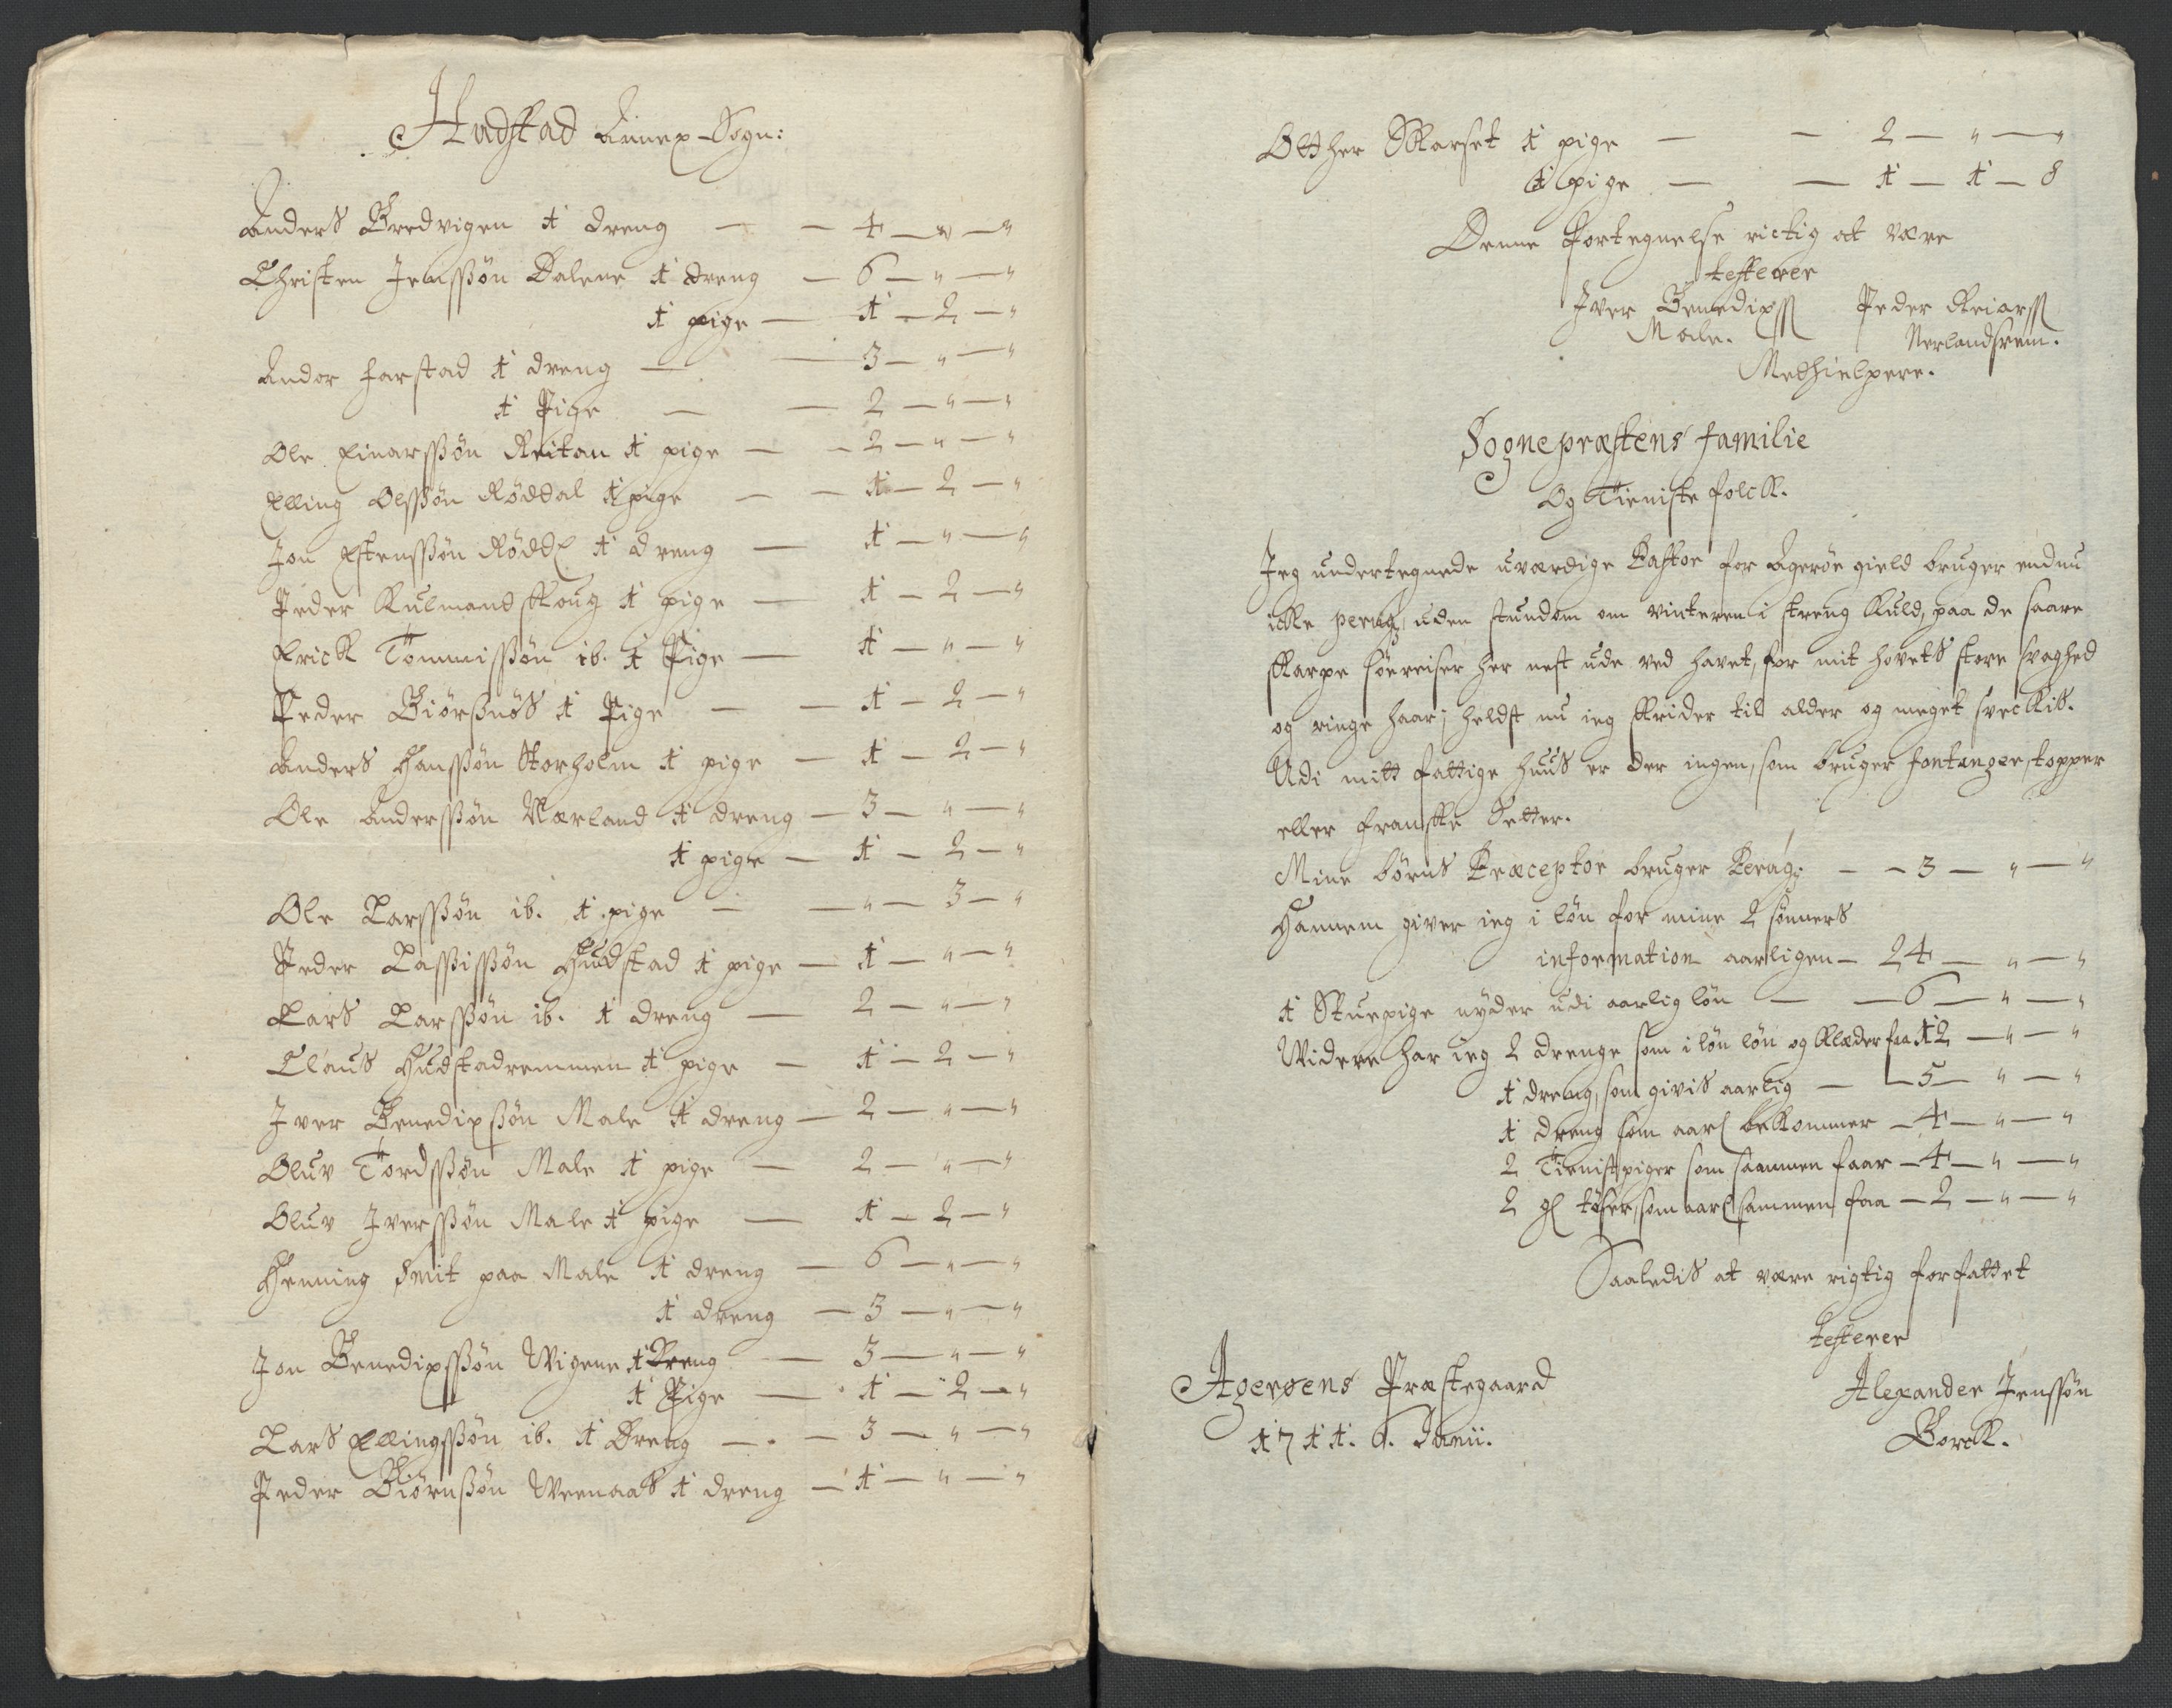 Hudstad Annex-Sogn:
Anders Bredvigen 1 dreng — — 4 — " — "
Christen Jenssøn Dalene 1 dreng — 6 — " — "
1 pige — 1 — 2 — "
Andor Farstad 1 dreng — — 3 — " — "
1 Pige — — 2 — " — "
Ole Einarssøn Reitan 1 pige — — 2 — " — "
Elling Olssøn Røddal 1 pige — — 1 — 2 — "
Jon Estenssøn Rødd 1 dreng — 1 — " — "
Peder Kulmandskoug 1 pige — 1 — 2 — "
Erick Tommissøn ib. 1 Pige — 1 — " — "
Peder Biørsnøs 1 Pige — — 1 — 2 — "
Anders Hanssøn Storholm 1 pige — 1 — 2 — "
Ole Anderssøn Nærland 1 dreng — 3 — " — "
1 pige — 1 — 2 — "
Ole Larssøn ib. 1 pige — — " — 3 — "
Peder Lassissøn Hudstad 1 pige — 1 — " — "
Lars Larssøn ib. 1 dreng — 2 — " — "
Claus Hudstadremmen 1 pige — 1 — 2 — "
Iver Benedixsøn Male 1 dreng — 2 — " — "
Oluv Tordssøn Male 1 pige — 2 — " — "
Oluv Iverssøn Male 1 pige — 1 — 2 — "
Henning Smit paa Male 1 dreng — 6 — " — "
1 dreng — 3 — " — "
Jon Benedixssøn Wigene 1 Dreng — 3 — " — "
1 Pige — 1 — 2 — "
Lars Ellingssøn ib. 1 Dreng — — 3 — " — "
Peder Biørnssøn Weenaas 1 dreng — 1 — " — "
Otther Skarset 1 pige — — 2 — " — "
1 pige — — 1 — 1 — 8
Denne Fortegnelse rictig at være
testerer
Iver Benedixss Peder Reiarss
Male. Nerlandsrem.
Medhielpere.
Sognepræstens familie
Og Tieniste folck.
Jeg undertegnede uværdige Pastor for Agerøe gield bruger endnu
icke peruq, uden stundom om vinteren i streng kuld, paa de saare
skarpe søereiser her nest ude ved havet, for mit hovets store svaghed
og ringe haar; heldst nu ieg skrider til alder og meget sveckis.
Udi mitt fattige huus er der ingen, som bruger fontanger, topper
eller franske Setter.
Mine børns Præceptor bruger Peruq; — — 3 — " — "
Hannem giver ieg i løn for mine 2 sønners
information aarligen — 24 — " — "
1 Stuepige nyder udi aarlig løn — — 6 — " — "
Widere har ieg 2 drenge som i løn løn og klæder faa 12 — " — "
1 dreng, som givis aarlig — — 5 — " — "
1 dreng som aarl bekommer — 4 — " — "
2 Tienistpiger som sammen faar — 4 — " — "
2 gl tøser, som aarl sammen faa — 2 — " — "
Saaledis at være rigtig forfattet
testerer
Agerøens Præstegaard Alexander Jenssøn
1711. 6. Junii. Borck.